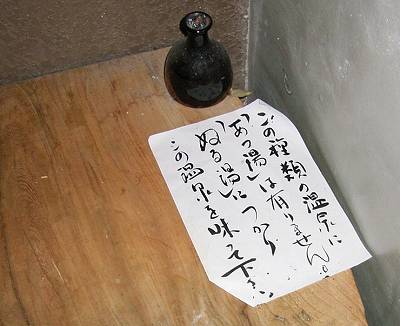 この種類の温泉に
「あつ湯」は有りません。
「ぬる湯」に つかり
この温泉を味って下さい